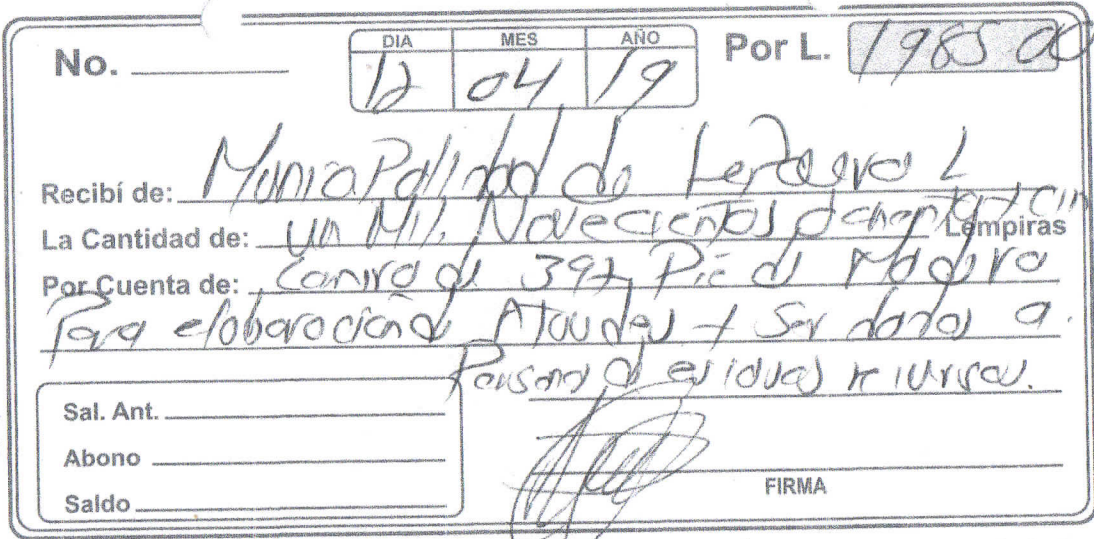 No. DIA MES AÑO Por L. 1985 00
12 04 19
Recibí de: Municipalidad de L
La Cantidad de: un Mil, Novecientos Lempiras
Por Cuenta de: de 397 Pie de Madera
Para elaboracion de Ataudes y Ser donados a.
Persona de recursos.
Sal. Ant.
Abono
Saldo
FIRMA